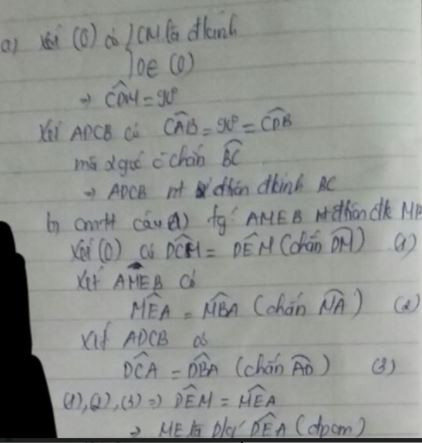 a) Xét (O) có { CM là đkính
D ∈ (O)
→ CDM = 90°
Xét ADCB có CAB = 90° = CDB
mà 2 góc c chắn BC
→ ADCB nt đtròn đkính BC
b, cmtt câu a) tg: AMEB nt đtròn đk MB
Xét (O) có DCM = DEM (chắn DM) (1)
Xét AMEB có
MEA = MBA (chắn MA) (2)
Xét ADCB có
DCA = DBA (chắn AD) (3)
(1), (2), (3) => DEM = MEA
→ ME là p/g DEA (đpcm)